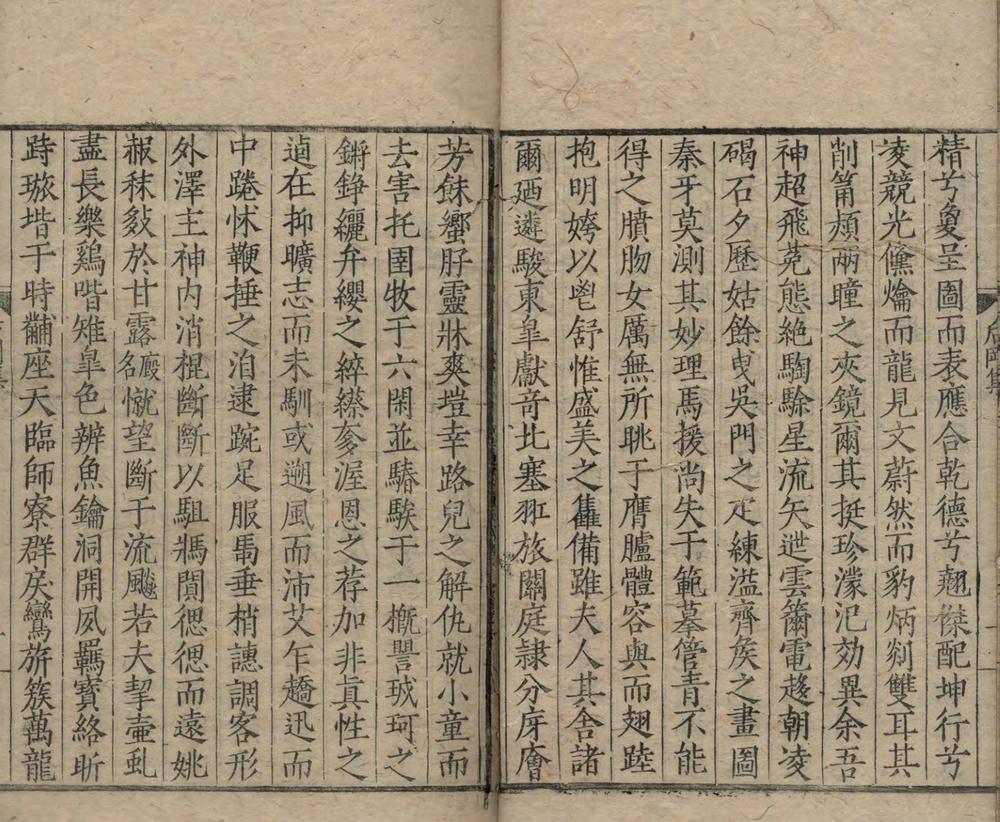 精兮夐呈圖而表應合乾德兮翹傑配坤行兮
凌競光儵爚而龍見文蔚然而豹炳剡雙耳其
削筩頰兩瞳之夾鏡爾其挺珍濛汜効異余吾
神超飛莬態絶騊駼星流矢迸雲籋電趍朝凌
碣石夕歷姑餘曳吳門之疋練溢齊矦之畫圖
秦牙莫測其妙理馬援尚失于範摹管青不能
得之膹肳女厲無所眺于膺臚體容與而翅踛
抱明姱以鬯舒惟盛美之雦備雖夫人其舍諸
爾廼遴駿東皐獻奇比塞羾旅闗庭隷分庌廥
芳餗蠁肸靈牀爽塏幸路兒之解仇就小童而
去害托圉牧于六閑並䮞騃于一槪譻珹珂之
鏘錚纚弁纓之綷縩奓渥恩之荐加非眞性之
逌在抑曠志而未馴或遡風而沛艾乍趫迅而
中踡怵鞭捶之洎逮踠足服馽垂梢譓調客形
外澤主神内消棍斷斷以駔獁閴偲偲而遠姚
赧秣敍於甘露廏名憱望斷于流飈若夫挈壷虬
盡長樂鷄喈雉皐色辨魚鑰洞開夙羈寳絡昕
跱璇堦于時黼座天臨師寮群戾鸞旂簇萬龍